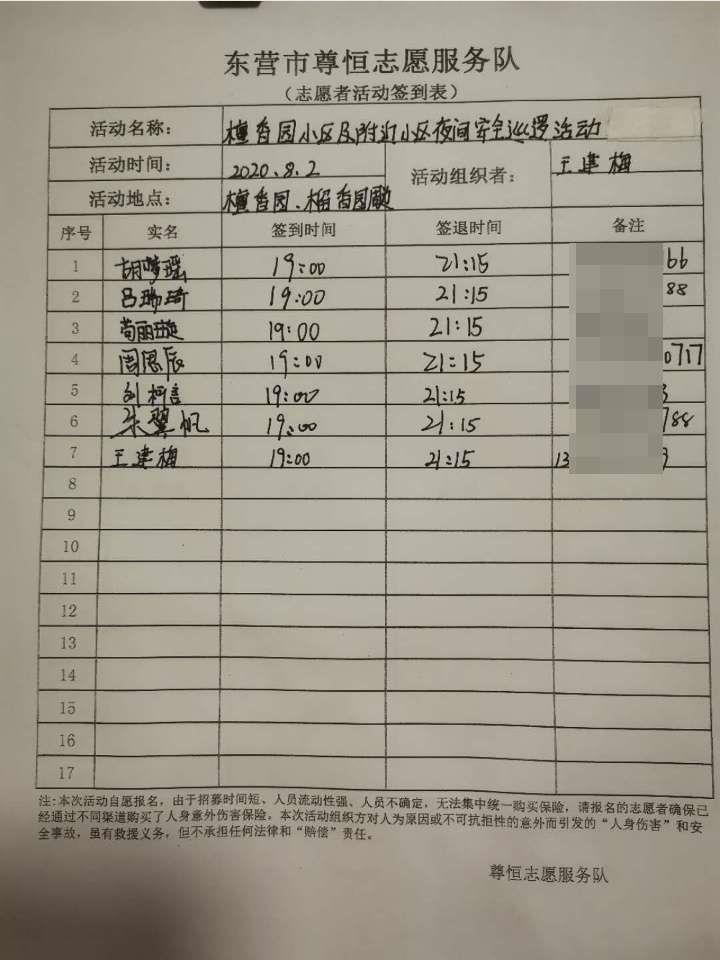 东营市尊恒志愿服务队
（志愿者活动签到表）
活动名称： 檀香园小区及附近小区夜间安全巡逻活动
活动时间： 2020.8.2 活动组织者： 王建梅
活动地点： 檀香园、榴香园
序号 实名 签到时间 签退时间 备注
1 胡梦瑶 19:00 21:15 66
2 吕瑞琦 19:00 21:15 88
3 苟丽璇 19:00 21:15
4 周恩辰 19:00 21:15 0717
5 刘柯言 19:00 21:15 3
6 朱翼帆 19:00 21:15 788
7 王建梅 19:00 21:15 13
8
9
10
11
12
13
14
15
16
17
注：本次活动自愿报名，由于招募时间短、人员流动性强、人员不确定，无法集中统一购买保险，请报名的志愿者确保已
经通过不同渠道购买了人身意外伤害保险。本次活动组织方对人为原因或不可抗拒性的意外而引发的“人身伤害”和安
全事故，虽有救援义务，但不承担任何法律和“赔偿”责任。
尊恒志愿服务队